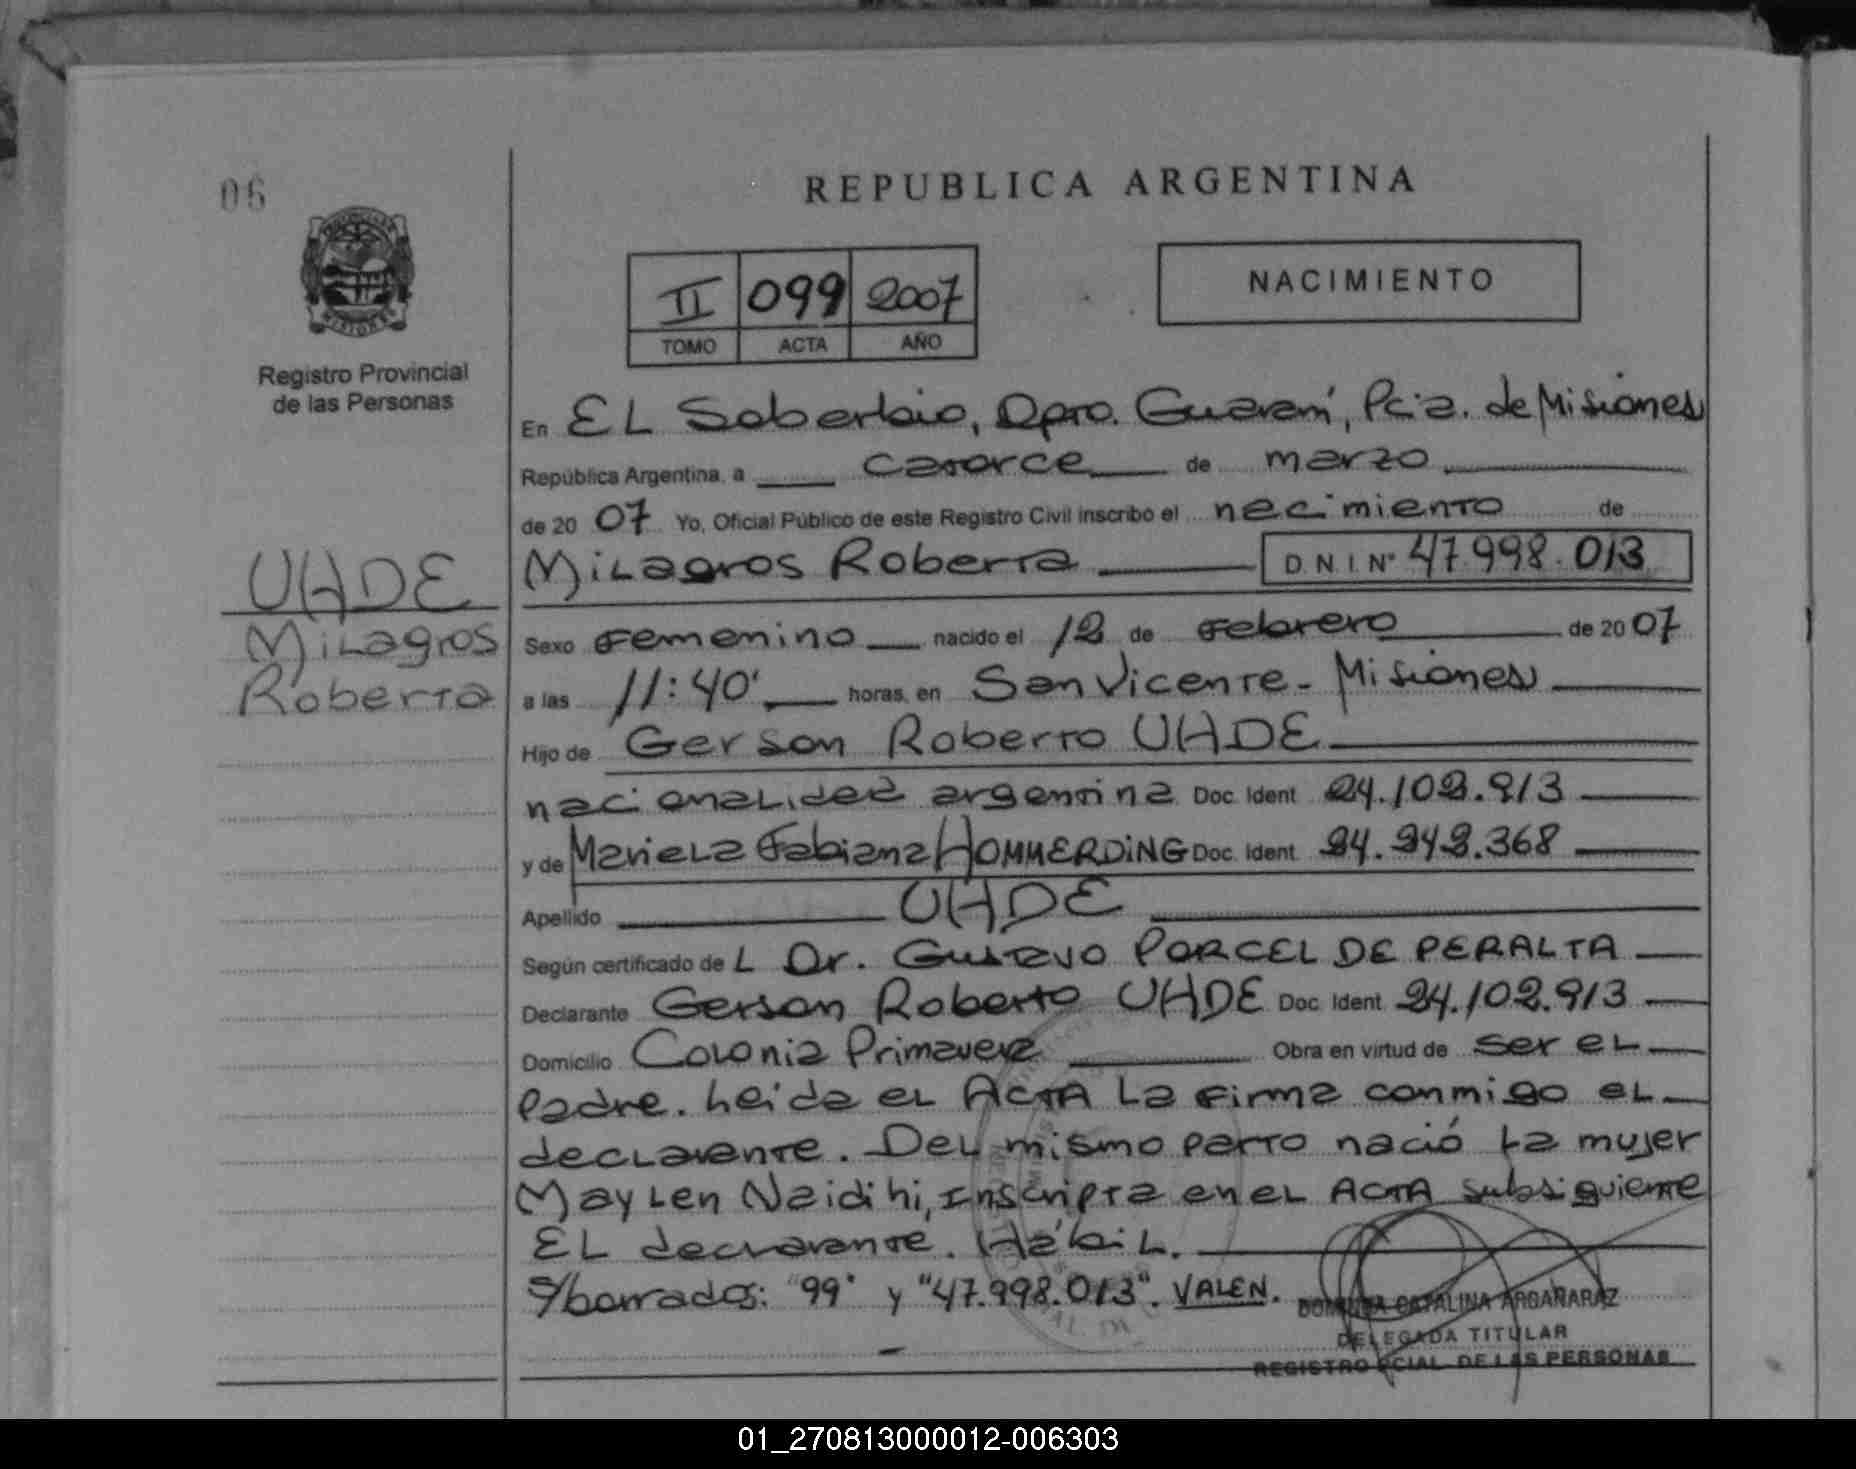 06
REPUBLICA ARGENTINA
II 099 2007
TOMO ACTA AÑO
NACIMIENTO
MISIONES
Registro Provincial
de las Personas
En EL Soberbio, Dpto. Guaraní, Pcia. de Misiones
República Argentina, a catorce de marzo
de 2007 Yo, Oficial Público de este Registro Civil inscribo el nacimiento de
Milagros Roberta D.N.I. Nº 47.998.013
UHDE
Milagros
Roberta
Sexo Femenino nacido el 12 de Febrero de 2007
a las 11:40' horas, en San Vicente - Misiones
Hijo de Gerson Roberto UHDE
nacionalidad argentina Doc. Ident. 24.102.913
y de Mariela Fabiana HOMMERDING Doc. Ident. 24.242.368
Apellido UHDE
Según certificado de L Dr. Gustavo PORCEL DE PERALTA
Declarante Gerson Roberto UHDE Doc. Ident. 24.102.913
Domicilio Colonia Primavera Obra en virtud de ser el
Padre. Leida el ACTA la firma conmigo el
declarante. Del mismo parto nació la mujer
Maylen Naidihi, Inscripta en el ACTA subsiguiente
EL declarante. Hábil.
S/borrados: "99" y "47.998.013". VALEN.
CATALINA ARGAÑARAZ
DELEGADA TITULAR
REGISTRO PCIAL. DE LAS PERSONAS
01_270813000012-006303